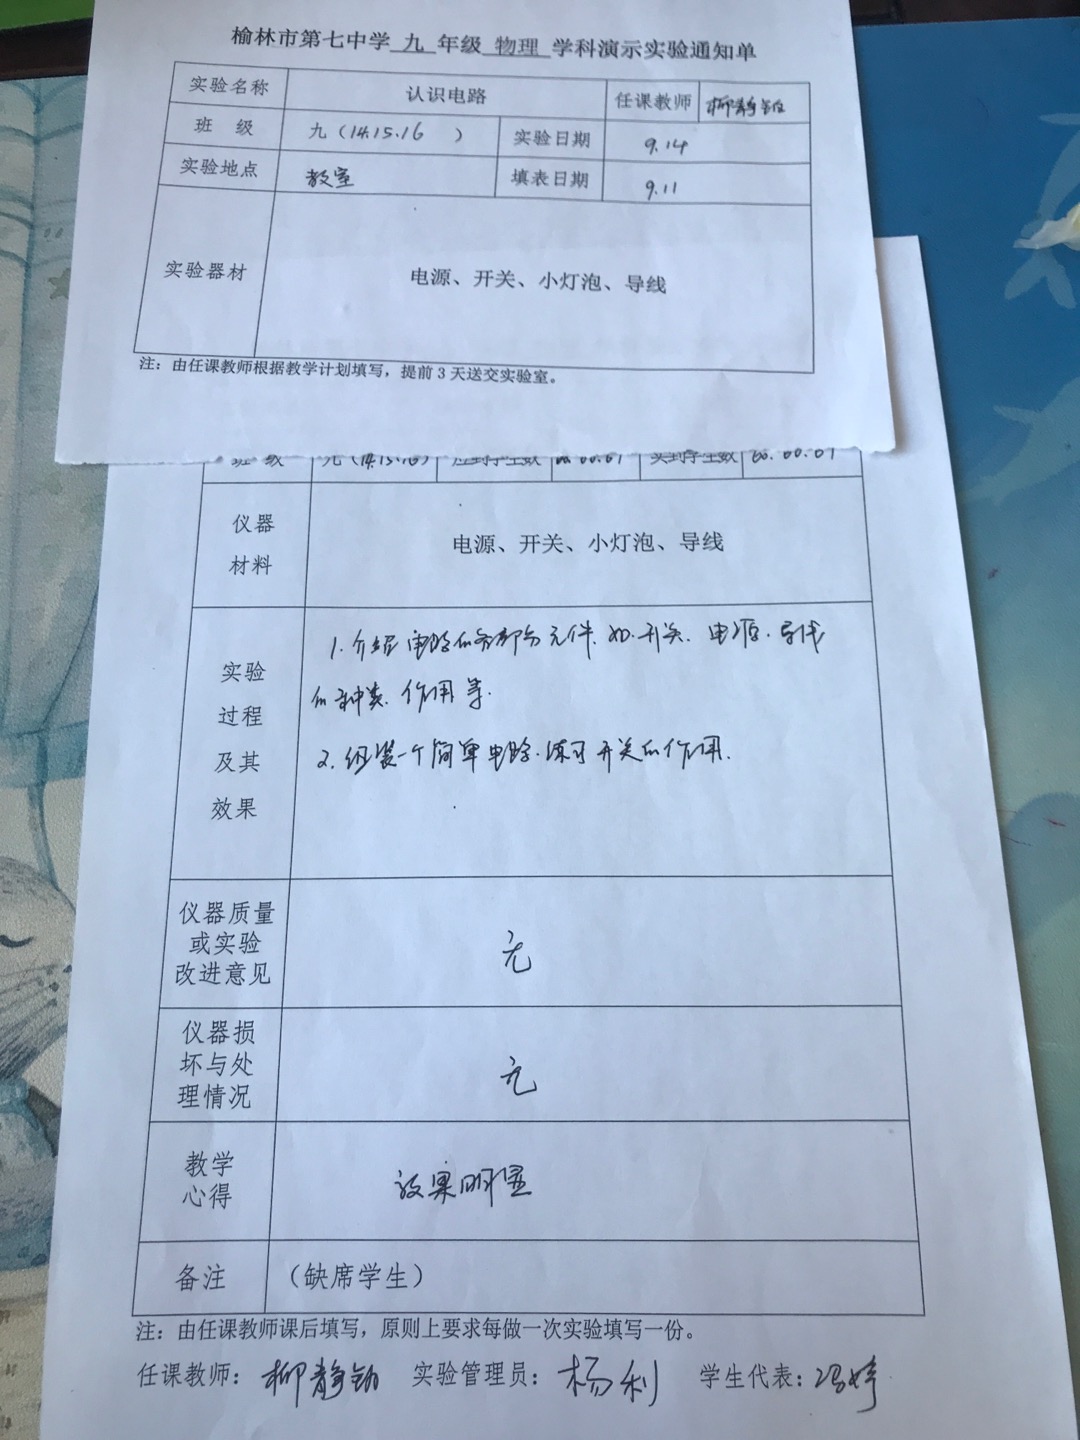 榆林市第七中学 九 年级 物理 学科演示实验通知单
实验名称 认识电路 任课教师 柳静
班 级 九（14.15.16 ） 实验日期 9.14
实验地点 教室 填表日期 9.11
实验器材 电源、开关、小灯泡、导线
注：由任课教师根据教学计划填写，提前 3 天送交实验室。
班 级 九（14.15.16） 应到学生数 实到学生数
仪器
材料
电源、开关、小灯泡、导线
实验
过程
及其
效果
1.介绍电路的各部分元件.如.开关.电源.导线
的种类.作用等.
2.组装一个简单电路.练习开关的作用.
仪器质量
或实验
改进意见
无
仪器损
坏与处
理情况
无
教学
心得
效果明显
备注 （缺席学生）
注：由任课教师课后填写，原则上要求每做一次实验填写一份。
任课教师：柳静 实验管理员：杨利 学生代表：冯婷